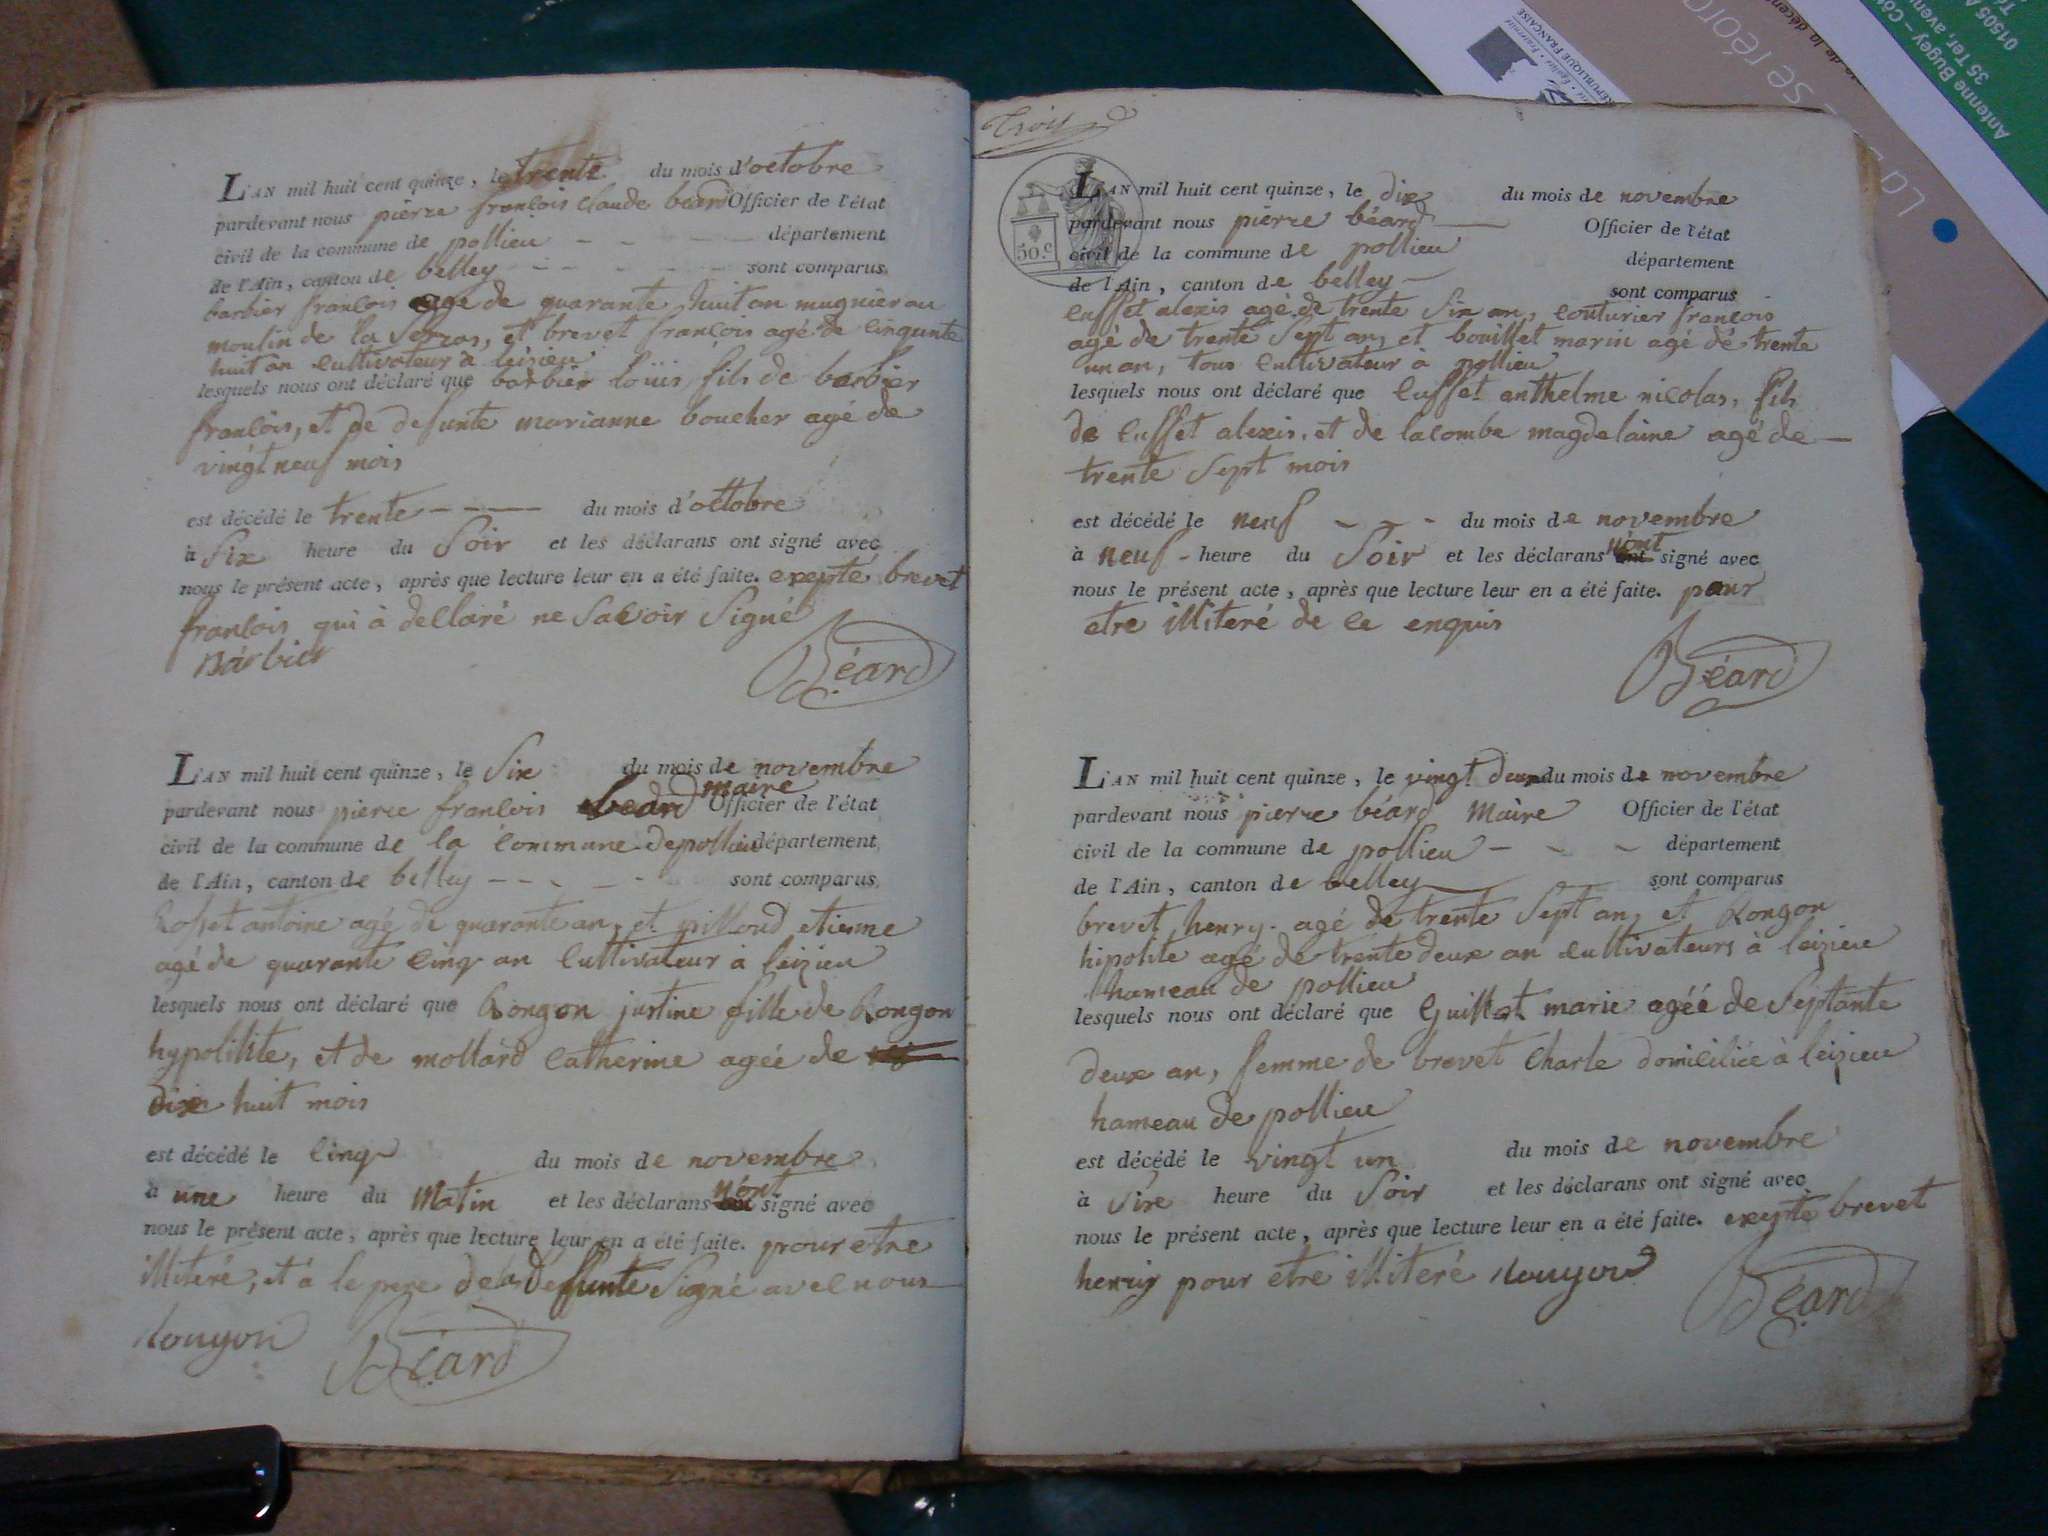 L'AN mil huit cent quinze, le trente du mois d'octobre
pardevant nous pierre françois claude béard Officier de l'état
civil de la commune de pollieu département
de l'Ain, canton de belley sont comparus
barbier françois agé de quarante huit an mugnier au
moulin de la , et brevet françois agé de cinqunte
huit an cultivateur à leizieu
lesquels nous ont déclaré que barbier loüis fils de barbier
françois, et de defunte marianne boucher agé de
vingt neuf mois
est décédé le trente du mois d'octobre
à Six heure du Soir et les déclarans ont signé avec
nous le présent acte, après que lecture leur en a été faite. exepté brevet
françois qui à dellaré ne Savoir Signé
Barbier Béard
L'AN mil huit cent quinze, le Six du mois de novembre
pardevant nous pierre françois beard maire Officier de l'état
civil de la commune de la commune de pollieu département
de l'Ain, canton de belley sont comparus
Rosset antoine agé de quarante an, et pilloud etienne
agé de quarante cinq an Cultivateur à leizieu
lesquels nous ont déclaré que Rongon justine fille de Rongon
hypolithte, et de mollard Catherine agée de
dixe huit mois
est décédé le Cinq du mois de novembre
à une heure du Matin et les déclarans n'ont signé avec
nous le présent acte, après que lecture leur en a été faite. pour etre
illiteré, et à le pere de la Deffunte Signé avec nous
Rougon Béard
trois
50.c
L'AN mil huit cent quinze, le dix du mois de novembre
pardevant nous pierre béard Officier de l'état
civil de la commune de pollieu département
de l'Ain, canton de belley sont comparus
Cusset alexis agé de trente Six an, couturier françois
agé de trente Sept an, et bouillet marin agé de trente
un an, tous Cultivateur à pollieu
lesquels nous ont déclaré que Cusset anthelme nicolas, fils
de Cusset alexis, et de lacombe magdelaine agé de
trente Sept mois
est décédé le neuf du mois de novembre
à neuf heure du Soir et les déclarans n'ont signé avec
nous le présent acte, après que lecture leur en a été faite. pour
etre illiteré de ce enquis
Béard
L'AN mil huit cent quinze, le vingt deux du mois de novembre
pardevant nous pierre béard Maire Officier de l'état
civil de la commune de pollieu département
de l'Ain, canton de belley sont comparus
brevet henry agé de trente Sept an, et Rongon
hipolite agé de trente deux an cultivateurs à leizieu
hameau de pollieu
lesquels nous ont déclaré que Guillot marie agéé de Septante
deux an, femme de brevet Charle domiciliée à leizieu
hameau de pollieu
est décédé le vingt un du mois de novembre
à Sixe heure du Soir et les déclarans ont signé avec
nous le présent acte, après que lecture leur en a été faite. exepté brevet
henry pour etre illiteré Rougon Béard
RÉPUBLIQUE FRANÇAISE
Antenne Bugey – Cô
35 Ter, avenu
01505 A
se réorg